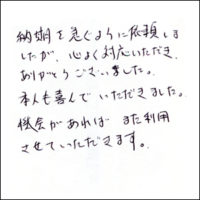 納期を急ぐように依頼しま
したが、心よく対応いただき、
ありがとうございました。
本人も喜んでいただきました。
機会があれば また利用
させていただきます。